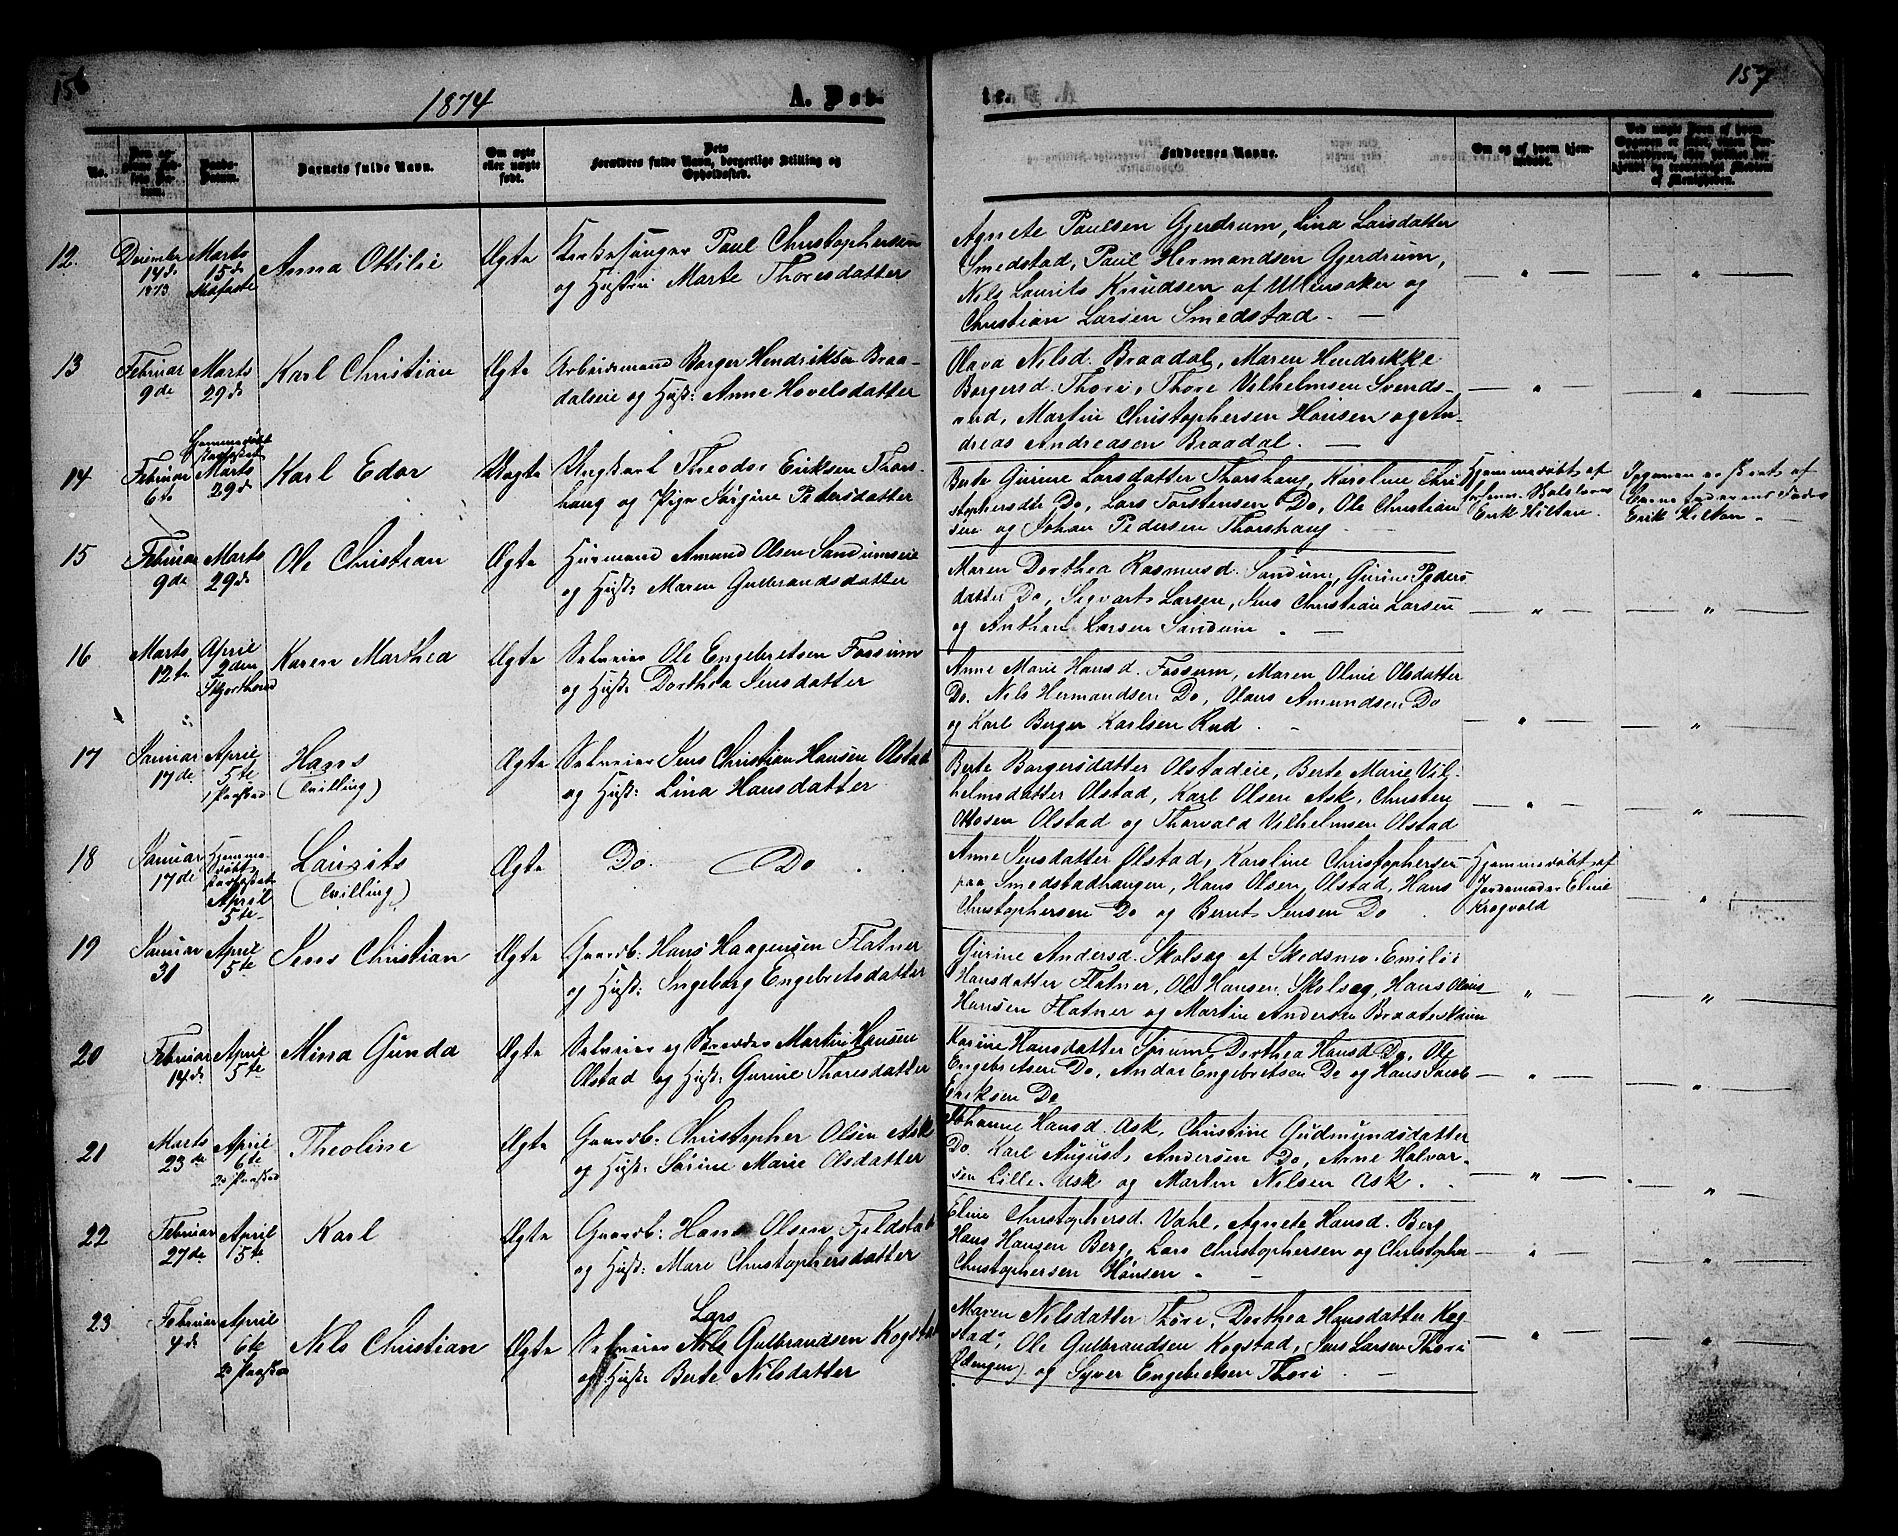 156
1874
A. Døb-
te.
157
No.
Barnets fulde Navn.
Om ægte eller uægte født.
Dets Forældres fulde Navn, borgerlige Stilling og Opholdssted.
Faddernes Navne.
Om og af hvem hjemmedøbt.
12.
December 14de 1873
Marts 15de Midfaste
Anna Ottilie
Ægte
Kirkesanger Paul Christophersen
og Hustru Marte Thoresdatter
Agnete Paulsen Gjerdrum, Lina Larsdatter
Smedstad, Paul Hermandsen Gjerdrum,
Nils Laurits Knudsen af Ullensaker og
Christian Larsen Smedstad. —
13
Februar 9de
Marts 29de
Karl Christian
Ægte
Arbeidsmand Borger Hendriksen Braa-
dalseie og Hust: Anne Hovelsdatter
Olava Nilsd. Braadal, Maren Hendrikke
Borgersd. Thori, Thore Vilhelmsen Svends-
rud, Martin Christophersen Hønsen og An-
dreas Andreasen Braadal. —
14
Februar 6te
Hjemmedøbt Stadfæstet Marts 29de
Karl Edor
Uægte
Ungkarl Theodor Eriksen Thors-
haug og Pige Jørgine Pedersdatter
Berte Gurine Larsdatter Thorshaug, Karoline Chri-
stophersdtr Do, Lars Torstensen Do, Ole Christian-
sen og Johan Pedersen Thorshaug —
Hjemmedøbt af
Erik Hilton.
Erik Hilton. —
15
Februar 9de
Marts 29de
Ole Christian
Ægte
Huusmand Amund Olsen Sandumseie
og Hust: Maren Gulbrandsdatter
Maren Dorthea Rasmusd. Sandum, Gurine Peders-
datter Do, Sigvart Larsen, Jens Christian Larsen
og Anthon Larsen Sandum. —
16
Marts 12te
April 2den Skjærthorsd
Karen Marthea
Ægte
Selveier Ole Engebretsen Fossum
og Hust: Dorthea Jensdatter
Anne Marie Hansd. Fossum, Maren Oline Olsdatter
Do. Nils Hermandsen Do, Olaus Amundsen Do
og Karl Berger Karlsen Rud. —
17
Januar 17de
April 5te 1 Paasked
Hans (Tvilling)
Ægte
Selveier Jens Christian Hansen Olstad
og Hust: Lina Hansdatter
Berte Borgersdatter Olstadeie, Berte Marie Vil-
helmsdatter Olstad, Karl Olsen Ask, Christen
Ottosen Olstad og Thorvald Vilhelmsen Olstad
18
Januar 17de
Hjemme-døbt, Stadfæstet April 5te
Laurits (Tvilling)
Ægte
Do. Do.
Anne Jensdatter Olstad, Karoline Christophersen
paa Smedstadhaugen, Hans Olsen Olstad, Hans
Christophersen Do og Bernt Jensen Do
Hjemmedøbt af
Jordemoder Eline
Krogvold
19
Januar 31
April 5te
Jens Christian
Ægte
Gaardb: Hans Haagensen Flatner
og Hust: Ingeborg Engebretsdatter
Gurine Andersd. Skolseg af Skedsmo. Emilie
Hansdatter Flatner, Ole Hansen Skolseg, Hans Olaus
Hansen Flatner og Martin Andersen Braateskum
20
Februar 14de
April 5te
Mina Gunda
Ægte
Selveier og Skrædder Martin Hansen
Olstad og Hust: Gurine Thoresdatter
Karine Hansdatter Sørum, Dorthea Hansd Do, Ole
Engebretsen Do, Andor Engebretsen Do og Hans Jacob
Eriksen Do
21
Marts 23de
April 6te 2den Paasked
Theoline
Ægte
Gaardb: Christopher Olsen Ask
og Hust: Sørine Marie Olsdatter
Johanne Hansd. Ask, Christine Gudmundsdatter
Do. Karl August Andersen Do, Arne Halvor-
sen Lille-Ask og Morten Nilsen Ask.
22
Februar 27de
April 5te
Karl
Ægte
Gaardb: Hans Olsen Fjeldstad
og Hust: Mari Christophersdatter
Eline Christophersd. Vahl, Agnete Hansd. Berg
Hans Hansen Berg, Lars Christophersen og Christopher
Christophersen Hønsen. —
23
Februar 4de
April 6te 2 Paasked
Nils Christian
Ægte
Lars
Selveier Nils Gulbrandsen Kogstad
og Hust: Berte Nilsdatter
Maren Nilsdatter Thori, Dorthea Hansdatter Kog-
stad, Ole Gulbrandsen Kogstad, Jens Larsen Thori
(Ødengen) og Syver Engebretsen Thori. —